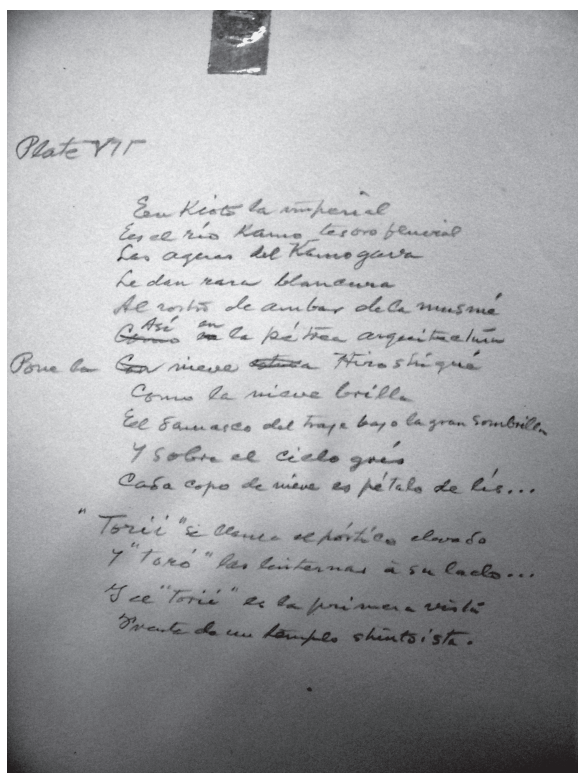 Plate VII
En Kioto la imperial
Es el río Kamo tesoro fluvial
Las aguas del Kamogava
Le dan rara blancura
Al rostro de ambar de la musmé
Así en
Como la pétrea arquitectura
Pone la nieve Hiroshigué
Como la nieve brilla
El damasco del traje bajo la gran sombrilla
Y sobre el cielo gris
Cada copo de nieve es pétalo de lis...
"Torií" se llama el pórtico elevado
Y "toró" las linternas á su lado...
Y el "Torií" es la primera vista
Frente de un templo shintoista.